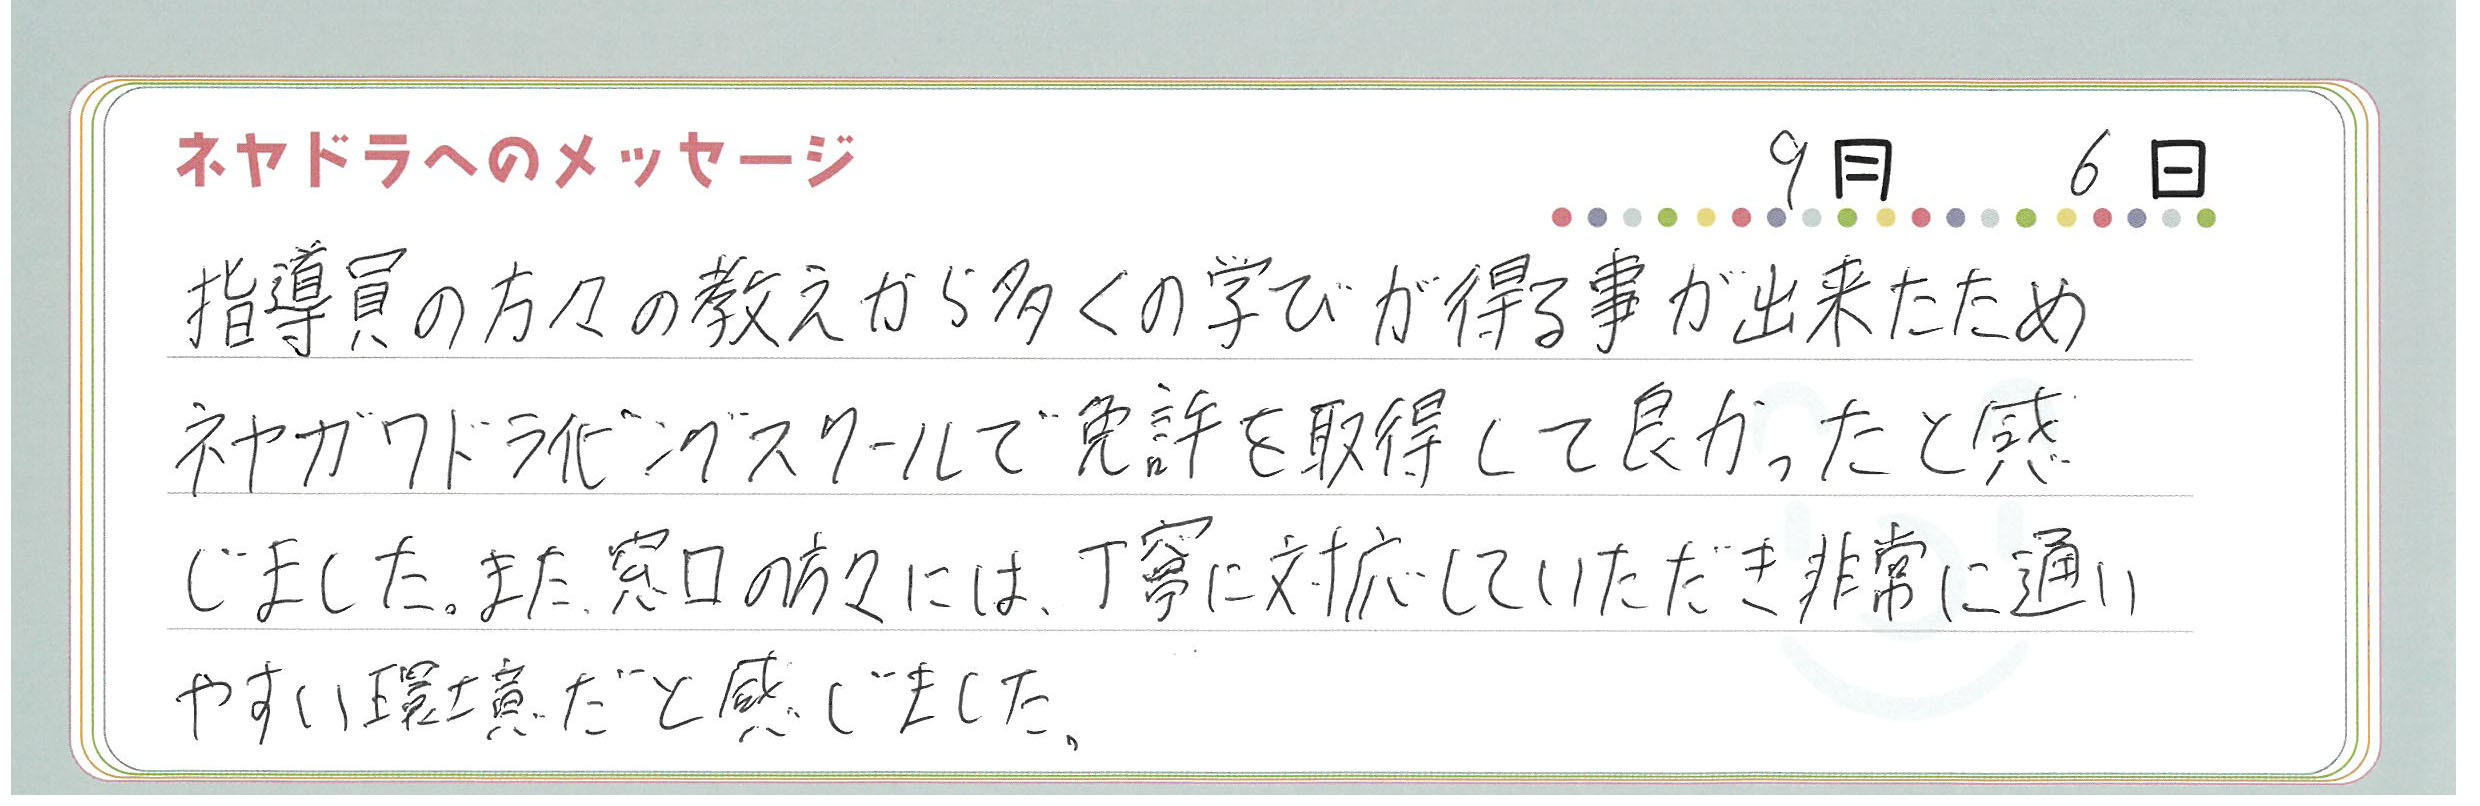 ネヤドラへのメッセージ
9月 6日
指導員の方々の教えから多くの学びが得る事が出来たため
ネヤガワドライビングスクールで免許を取得して良かったと感
じました。また、窓口の方々には、丁寧に対応していただき非常に通い
やすい環境だと感じました。